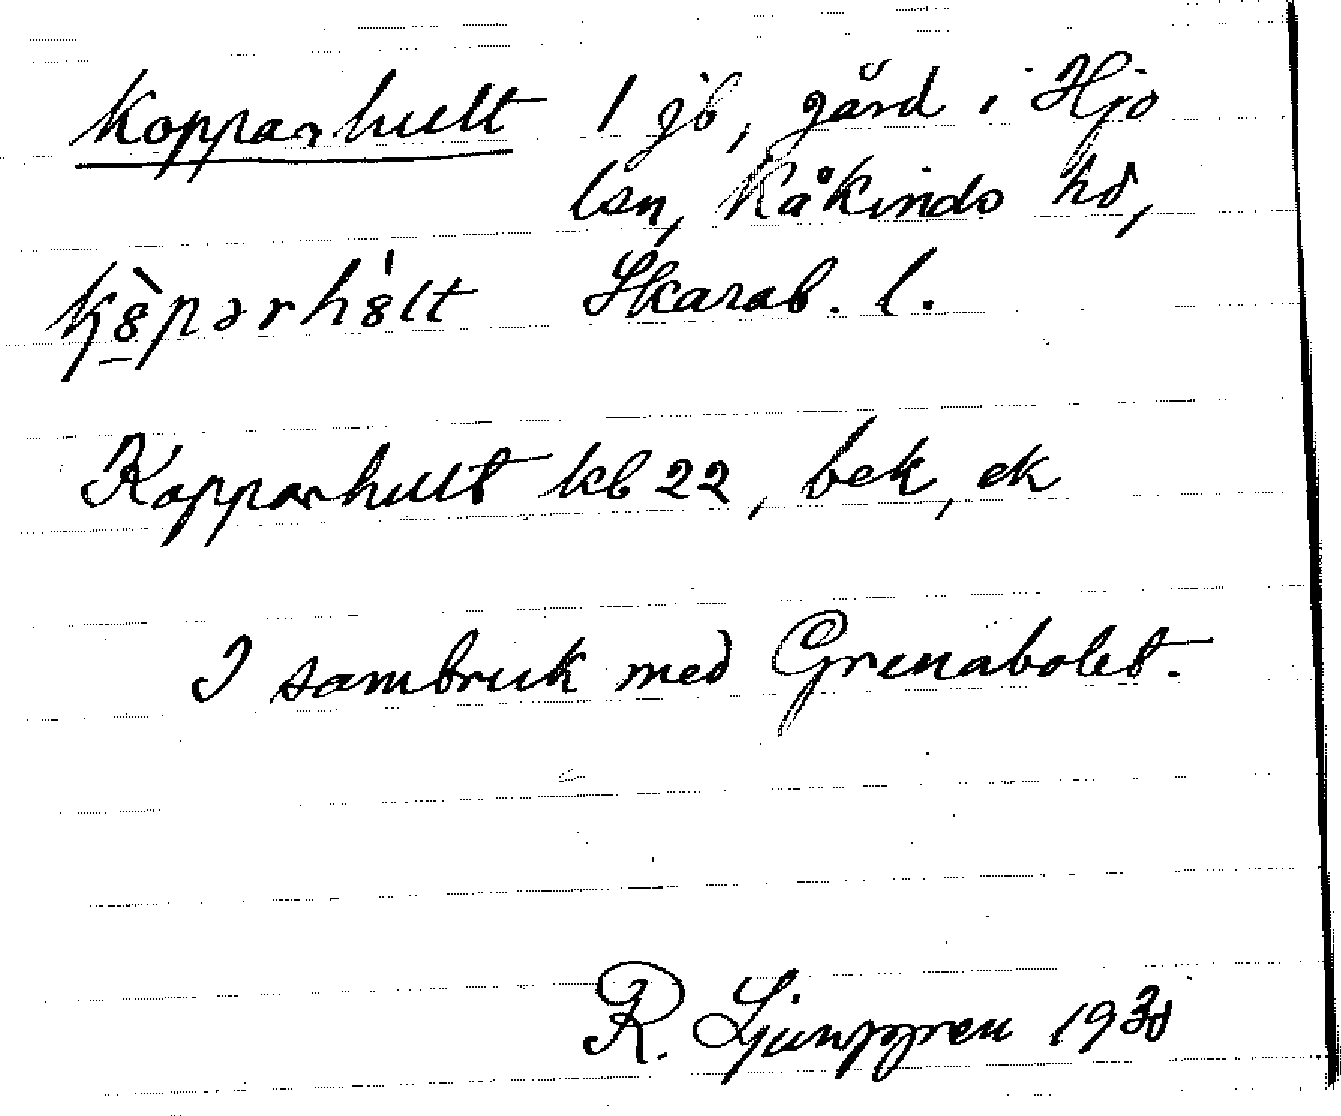 Kopparhult 1 jb, gård i Hjo
lsn, Kåkinds hd,
Skarab. l.
Kopparhult kb 22, bek, ek
I sambruk med Grenabolet.
R. Ljunggren 1930